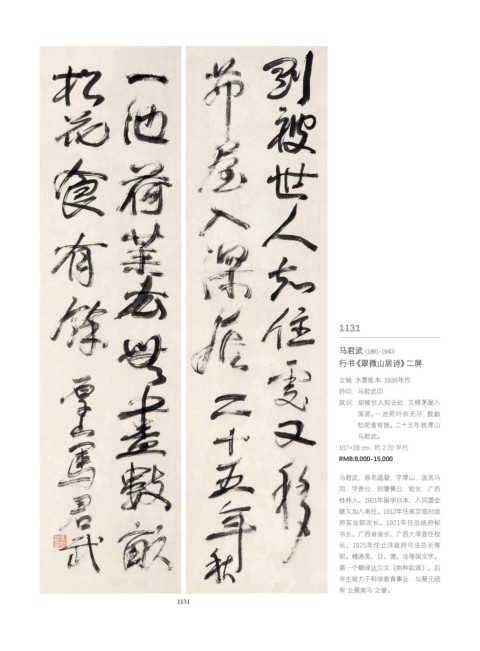 被世人知住處又移
茆屋入深居 二十五年秋
一池荷葉衣無盡數畝
松花食有餘 厚山馬君武
1131
1131
马君武 (1881-1940)
行书《翠微山居诗》二屏
立轴 水墨纸本 1936年作
钤印: 马君武印
款识: 却被世人知去处, 又移茅屋入
深居。一池荷叶衣无尽, 数畝
松花食有馀。二十五年秋厚山
马君武。
107×28 cm. 约 2.70 平尺
RMB:8,000-15,000
马君武, 原名道凝, 字厚山, 改名马
同, 字贵公, 别署篑公、敝化, 广西
桂林人。1901年留学日本, 入同盟会
继又加入南社。1912年任南京临时政
府实业部次长。1921年任总统府秘
书长、广西省省长。广西大学首任校
长。1925年任北洋政府司法总长等
职。精通英、日、德、法等国文字。
第一个翻译达尔文《物种起源》。后
半生致力于科学教育事业, 与蔡元培
有“北蔡南马”之誉。